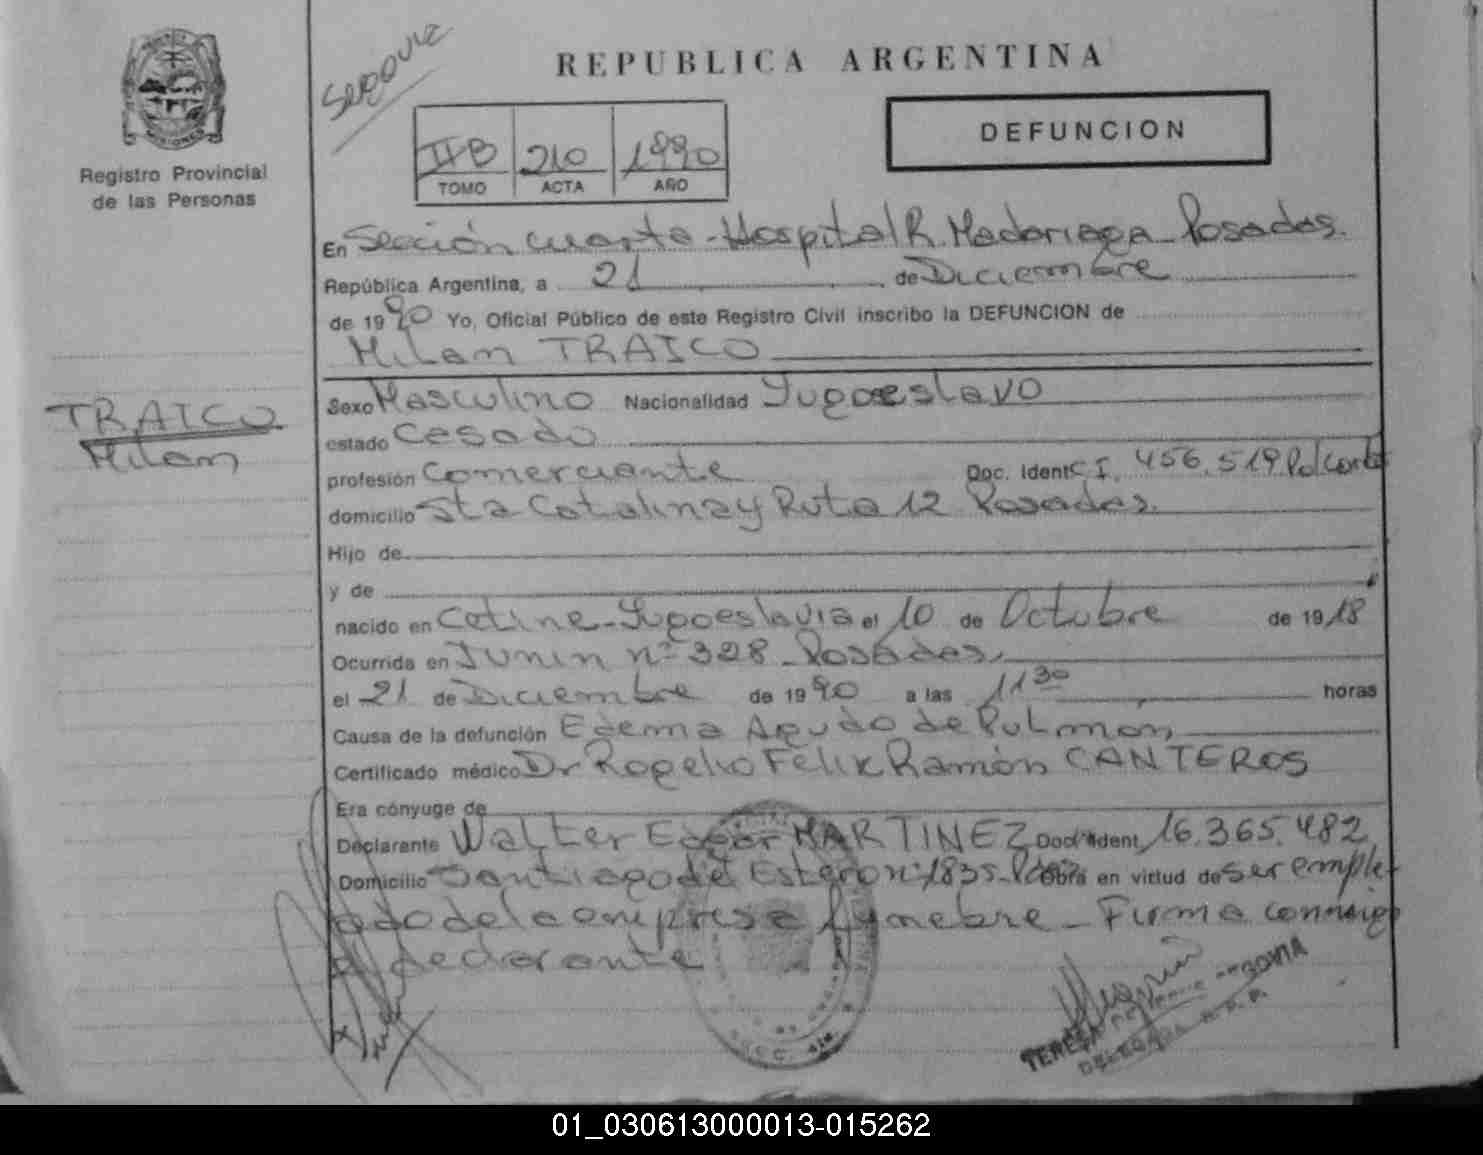 REPUBLICA ARGENTINA
DEFUNCION
IIB 210 1990
TOMO ACTA AÑO
MISIONES
Registro Provincial
de las Personas
En Sección cuarta - Hospital R. Madariaga - Posadas.
República Argentina, a 21 de Diciembre
de 1990 Yo, Oficial Público de este Registro Civil inscribo la DEFUNCION de
Milan TRAICO
TRAICO
Milan
Sexo Masculino Nacionalidad Yugoeslavo
estado Casado
profesión Comerciante Doc. Ident C I. 456.519 Pol
domicilio Sta Catalina y Ruta 12 Posadas.
Hijo de
y de
nacido en Cetine - Yugoeslavia el 10 de Octubre de 1918
Ocurrida en Junin nº 328 - Posadas,
el 21 de Diciembre de 1990 a las 11 30 horas
Causa de la defunción Edema Agudo de Pulmon,
Certificado médico Dr Rogelio Felix Ramón CANTEROS
Era cónyuge de
Declarante Walter Edgar MARTINEZ Doc. Ident 16.365.482
Domicilio Santiago del Estero nº 1835 - Pdas Obra en virtud de ser emple-
ado de la empresa fúnebre - Firma conmigo
el declarante
TERESA
DELEGADA R.P.P.
01_030613000013-015262